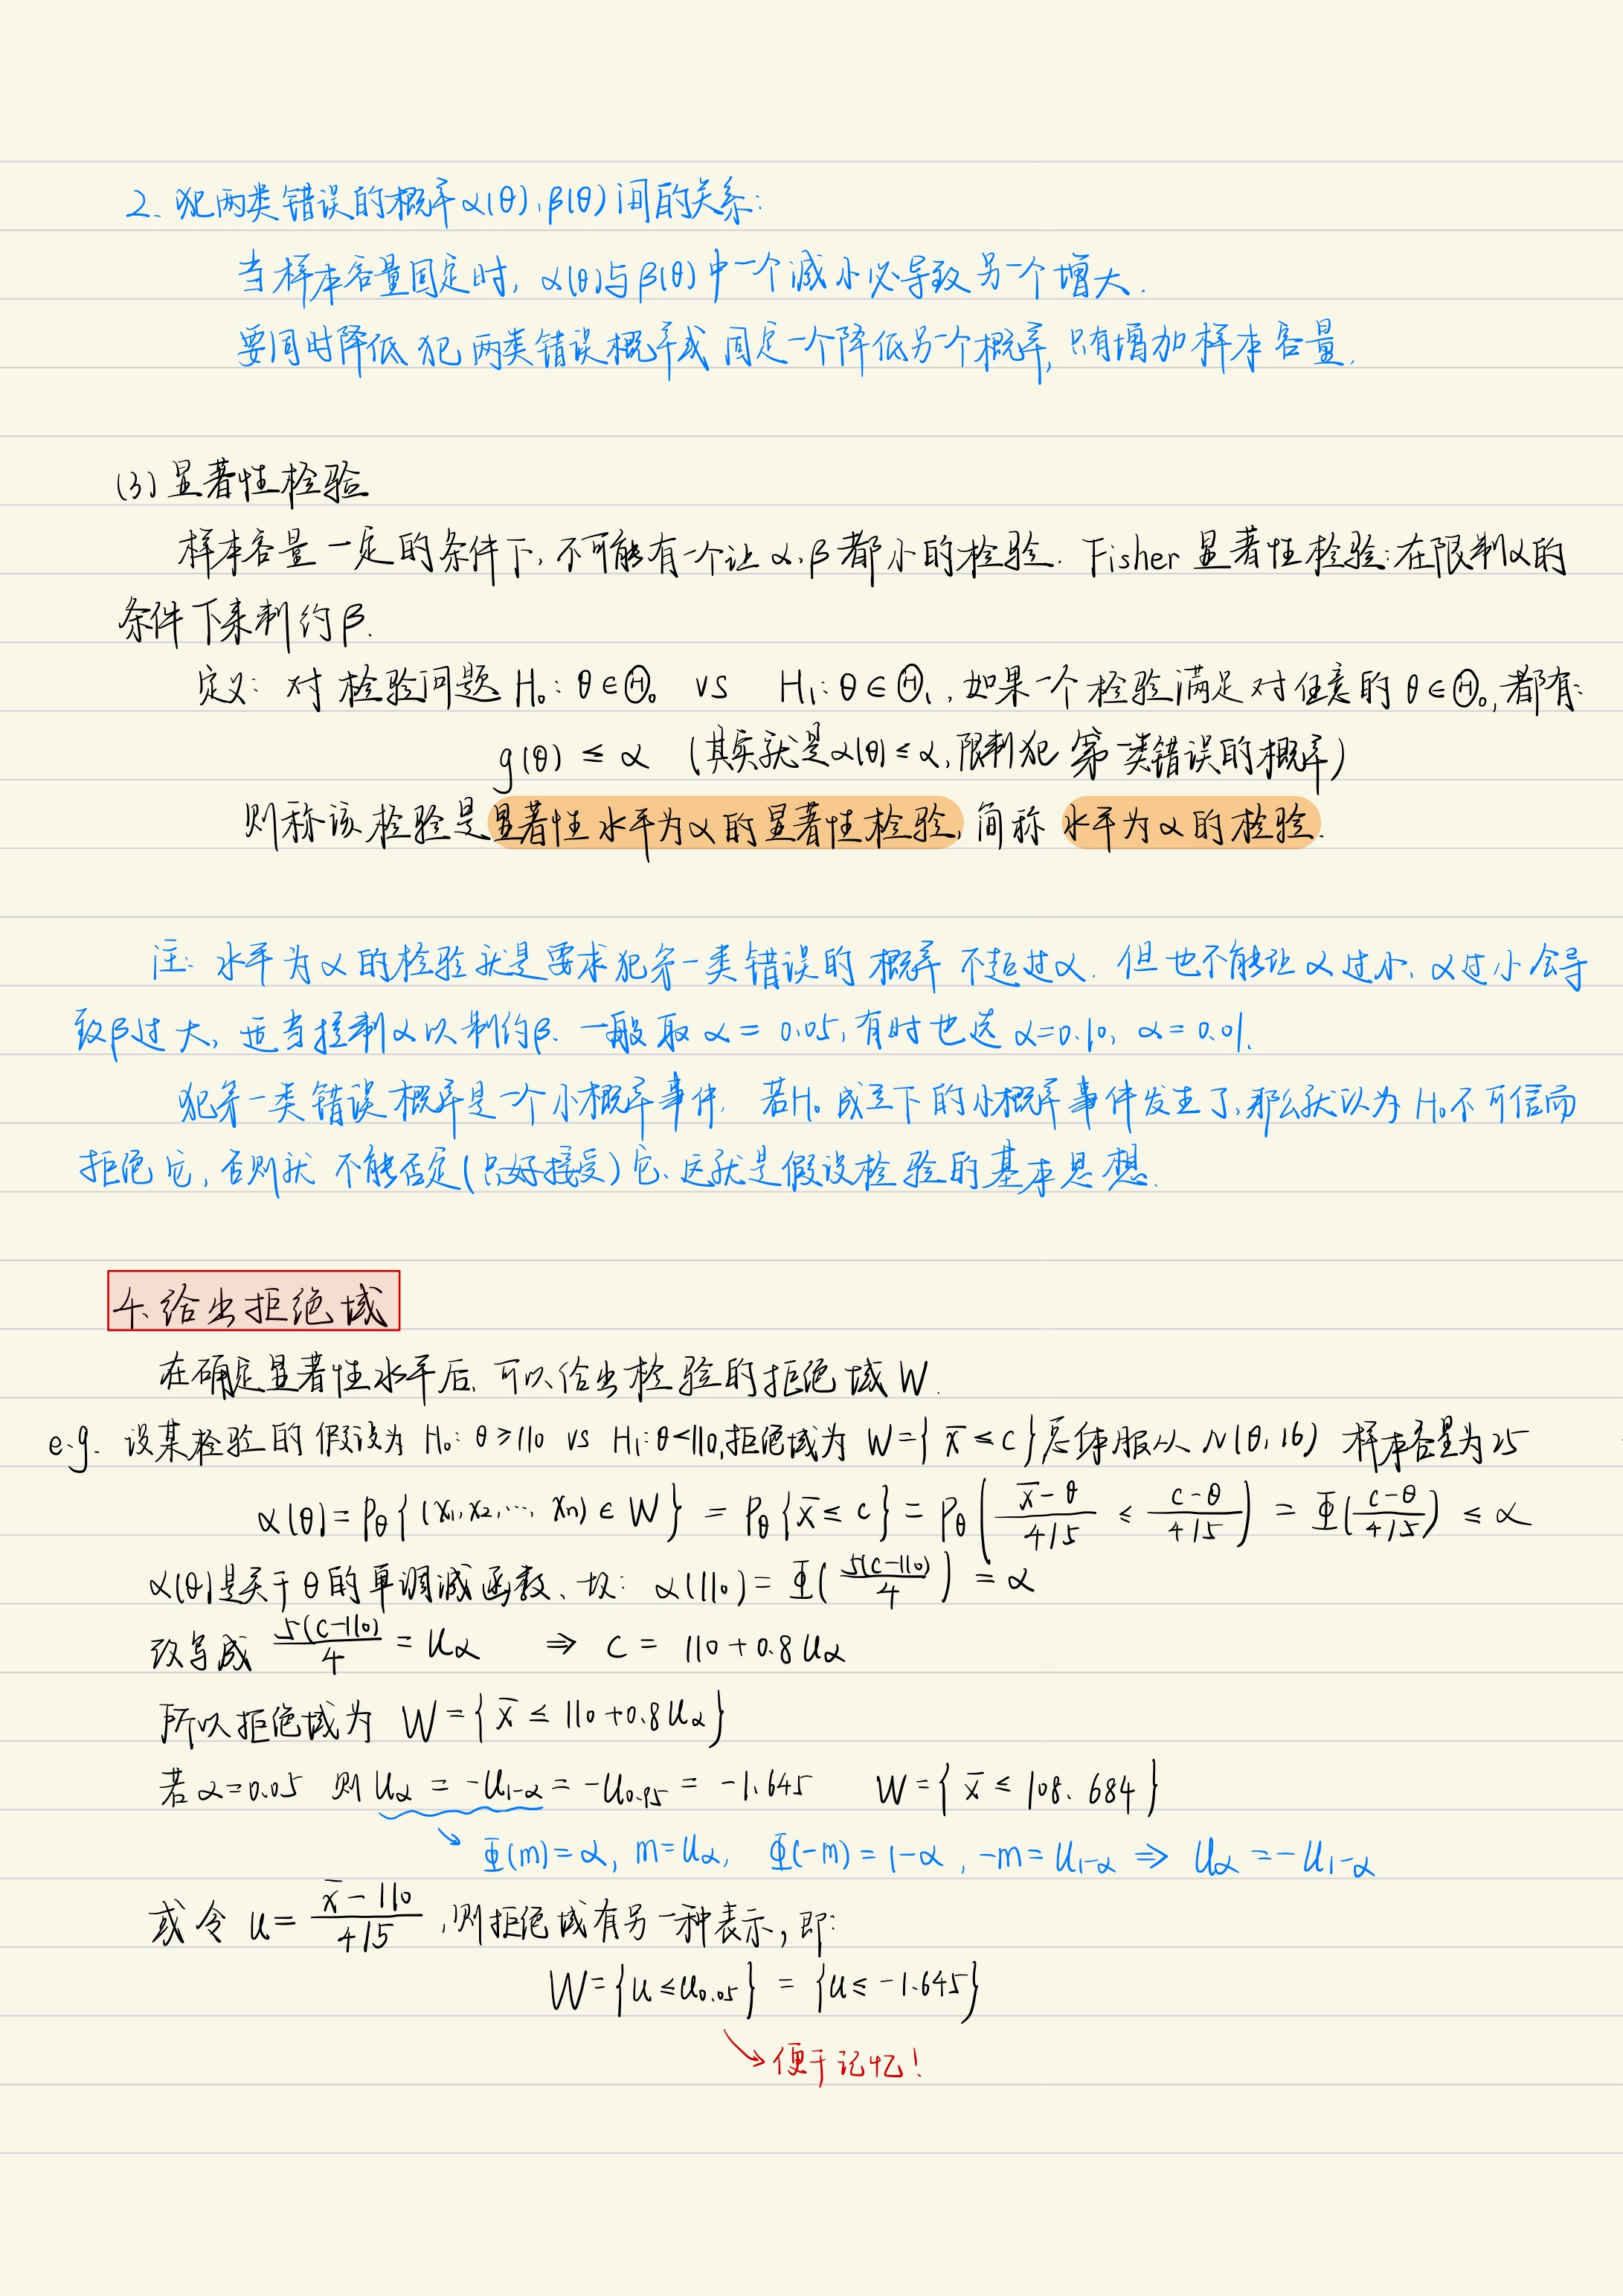 2. 犯两类错误的概率α(θ),β(θ)间的关系:
当样本容量固定时, α(θ)与β(θ)中一个减小必导致另一个增大.
要同时降低犯两类错误概率或固定一个降低另一个概率, 只有增加样本容量.
(3) 显著性检验
样本容量一定的条件下, 不可能有一个让α、β都小的检验. Fisher 显著性检验: 在限制α的
条件下来制约β.
定义: 对检验问题 H₀: θ∈Θ₀ vs H₁: θ∈Θ₁, 如果一个检验满足对任意的 θ∈Θ₀, 都有:
g(θ) ≤ α (其实就是α(θ)≤α, 限制犯第一类错误的概率)
则称该检验是显著性水平为α的显著性检验, 简称 水平为α的检验.
注: 水平为α的检验就是要求犯第一类错误的概率不超过α. 但也不能让α过小, α过小会导
致β过大, 适当控制α以制约β. 一般取α= 0.05, 有时也选α=0.10, α=0.01.
犯第一类错误概率是一个小概率事件. 若H₀成立下的小概率事件发生了, 那么就认为H₀不可信而
拒绝它, 否则就不能否定(只好接受)它、这就是假设检验的基本思想.
4、给出拒绝域
在确定显著性水平后, 可以给出检验的拒绝域W.
e.g. 设某检验的假设为 H₀: θ≥110 vs H₁: θ<110, 拒绝域为 W={x̄ ≤ c} 总体服从 N(θ,16) 样本容量为25
α(θ) = P_θ{(x₁,x₂,…, xₙ) ∈ W} = P_θ{x̄ ≤ c} = P_θ((x̄-θ)/(4/5) ≤ (c-θ)/(4/5)) = Φ((c-θ)/(4/5)) ≤ α
α(θ)是关于θ的单调减函数、故: α(110) = Φ(5(c-110)/4) = α
改写成 5(c-110)/4 = u_α ⇒ c = 110+0.8u_α
所以拒绝域为 W={x̄ ≤ 110+0.8u_α}
若α=0.05 则 u_α = -u_{1-α} = -u_{0.95} = -1.645 W={x̄ ≤ 108.684}
Φ(m)=α, m=u_α, Φ(-m)=1-α, -m=u_{1-α} ⇒ u_α=-u_{1-α}
或令 u= (x̄-110)/(4/5), 则拒绝域有另一种表示, 即:
W={u ≤ u_{0.05}} = {u ≤ -1.645}
便于记忆!